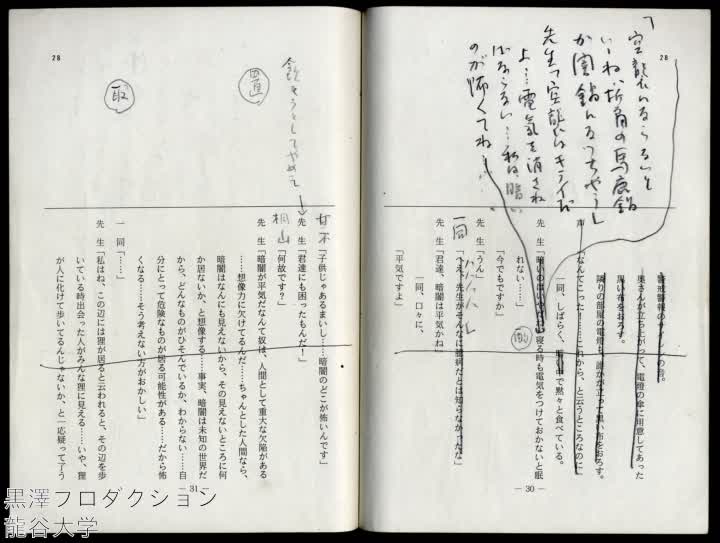 28
「空襲になる」と
いーね、折角の馬鹿鍋
が闇鍋になっちゃうし
先生「空襲はキライだ
よ…電気を消さね
ばならない…私は、暗い
のが怖くてね」
警戒警報のサイレンの音。
奥さんが立ち上がって、電燈の傘に用意してあった
黒い布をおろす。
隣りの部屋の電燈も、誰かが立って黒い布をおろす。
声「なんてこった！……これから、と云うところなのに」
一同、しばらく、暗い中で黙々と食べている。
先生「暗いのはいやだね。寝る時も電気をつけておかないと眠
れない……」
「今でもですか」
先生「うん」
一同「へえ、先生がそんなに臆病だとは知らなかったな」
先生「君達、暗闇は平気かね」
一同、口々に、
「平気ですよ」
— 30 —
28
置
飲もうとしてやめて
取
甘木「子供じゃあるまいし……暗闇のどこが怖いんです」
先生「君達にも困ったもんだ！」
桐山「何故です？」
先生「暗闇が平気だなんて奴は、人間として重大な欠陥がある
……想像力に欠けてるんだ……ちゃんとした人間なら、
暗闇はなんにも見えないから、その見えないところに何
か居ないか、と想像する……事実、暗闇は未知の世界だ
から、どんなものがひそんでいるか、わからない……自
分にとって危険なものが居る可能性がある……だから怖
くなる……そう考えない方がおかしい」
一同「……」
先生「私はね、この辺には狸が居ると云われると、その辺を歩
いている時出会った人がみんな狸に見える……いや、狸
が人に化けて歩いてるんじゃないか、と一応疑って了う
— 31 —
黒澤プロダクション
龍谷大学